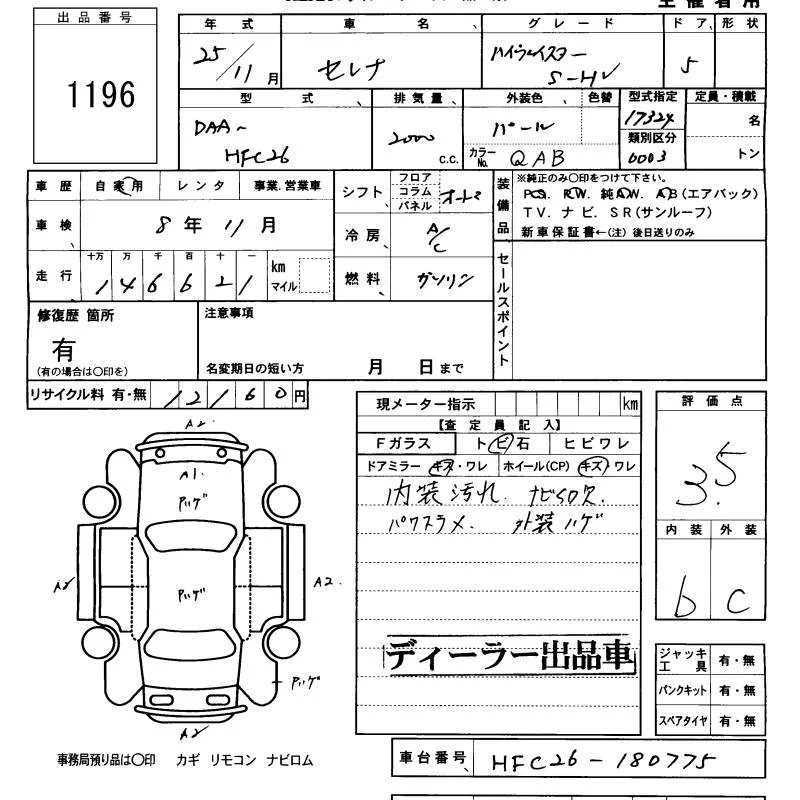 出品番号
1196
年式 車名 グレード ドア 形状
25/11月 セレナ ハイウェイスター S-HV 5
型式 排気量 外装色 色替 型式指定 定員・積載
DAA~ HFC26 2000 c.c. パール 17324 名
カラーNo. QAB 類別区分 0003 トン
車歴 自家用 レンタ 事業.営業車
シフト フロア コラム パネル オートマ
装備品 ※純正のみ〇印をつけて下さい。
PS. PW. 純AW. AB(エアバック)
TV. ナビ. SR(サンルーフ)
新車保証書←(注) 後日送りのみ
車検 8年11月
冷房 A/C
走行 十万 万 千 百 十 一
146621 km マイル
燃料 ガソリン
セールスポイント
修復歴 箇所
有
(有の場合は〇印を)
注意事項
名変期日の短い方 月 日まで
リサイクル料 有・無 12160円
現メーター指示 km
【査定員記入】
Fガラス トビ石 ヒビワレ
ドアミラー キズ・ワレ ホイール(CP) キズ・ワレ
内装汚れ. ナビSD欠.
パワスラメ. 外装ハゲ
ディーラー出品車
評価点
3.5
内装 外装
b C
A2
A1
P.ハゲ
P.ハゲ
A2
A2.
P.ハゲ
A2
ジャッキ工具 有・無
パンクキット 有・無
スペアタイヤ 有・無
事務局預り品は〇印 カギ リモコン ナビロム
車台番号 HFC26-180775